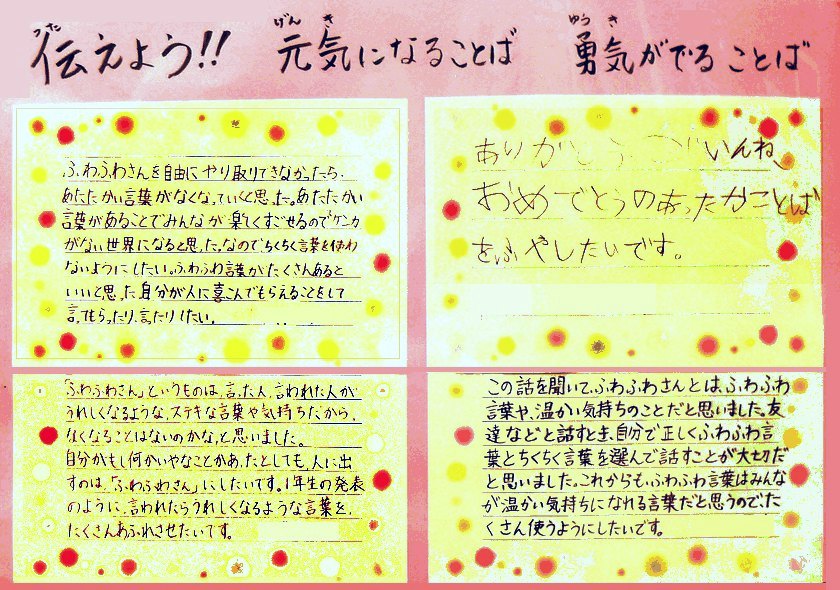 伝えよう!! 元気になることば 勇気がでることば
つた げんき ゆうき
ふわふわさんを自由にやり取りできなかったら、
あたたかい言葉がなくなっていくと思った。あたたかい
言葉があることでみんなが楽しくすごせるのでケンカ
がない世界になると思った。なのでちくちく言葉を使わ
ないようにしたい。ふわふわ言葉がたくさんあると
いいと思った自分が人に喜こんでもらえることをして
言ってもらったり、言ったりしたい。
ありがとう ごいんね、
おめでとうのあったかことば
をふやしたいです。
「ふわふわさん」というものは、言った人、言われた人が
うれしくなるような、ステキな言葉や気持ちだから、
なくなることはないのかな、と思いました。
自分がもし何かいやなことがあったとしても、人に出
すのは、「ふわふわさん」にしたいです。1年生の発表
のように、言われたらうれしくなるような言葉を、
たくさんあふれさせたいです。
この話を聞いて、ふわふわさんとは、ふわふわ
言葉や、温かい気持ちのことだと思いました。友
達などと話すとき、自分で正しくふわふわ言
葉とちくちく言葉を選んで話すことが大切だ
と思いました。これからも、ふわふわ言葉はみんな
が温かい気持ちになれる言葉だと思うので、た
くさん使うようにしたいです。